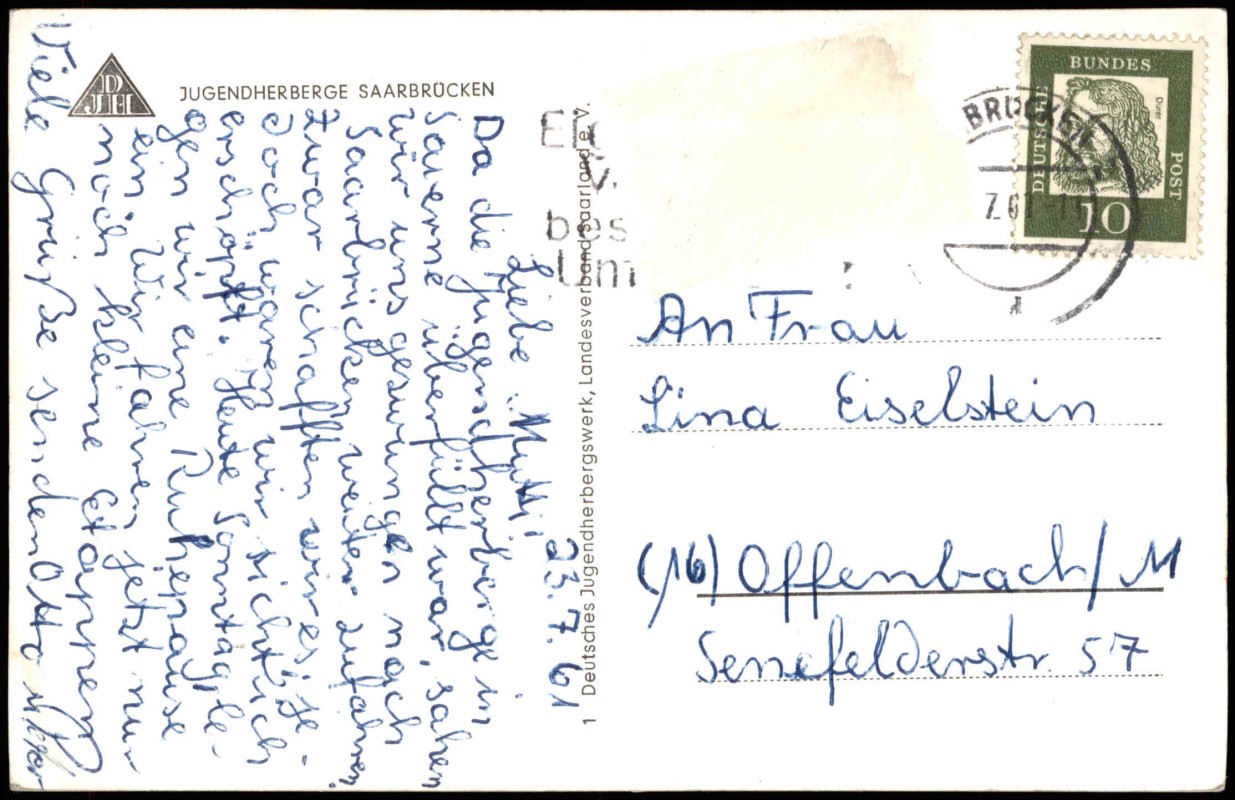 DJH
JUGENDHERBERGE SAARBRÜCKEN
23.7.61
Liebe Mutti!
Da die Jugendherberge in
Saverne überfüllt war, sahen
wir uns gezwungen nach
Saarbrücken weiter zufahren.
Zwar schafften wir es, je-
doch waren wir sichtlich
erschöpft. Heute Sonntag le-
gen wir eine Ruhepause
ein. Wir fahren jetzt nur
noch kleine Etappen
Viele Grüße senden Otto
1 Deutsches Jugendherbergswerk, Landesverband Saarland e. V.
BUNDES
DEUTSCHE
POST
Dürer
10
BRÜCKEN
7.61
bes
An Frau
Lina Eiselstein
(16) Offenbach/M
Senefelderstr. 57